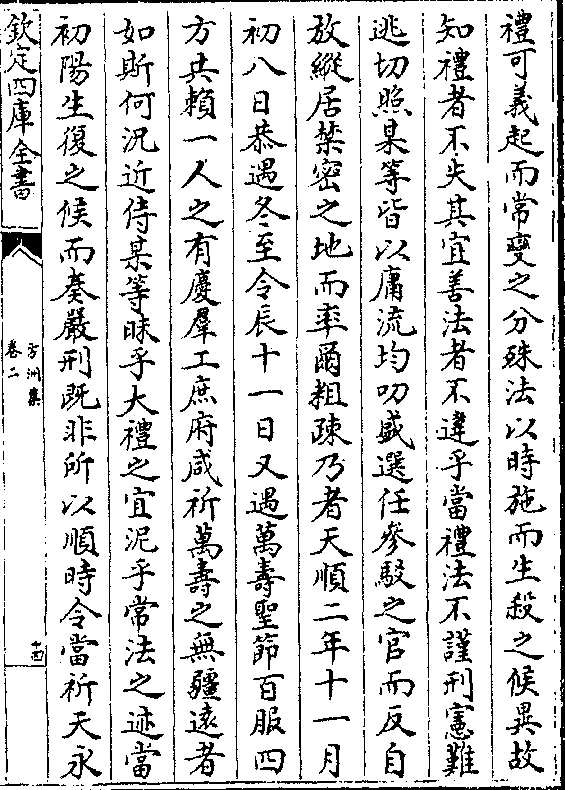 禮可義起而常變之分殊法以時施而生殺之候異故
知禮者不失其宜善法者不違乎當禮法不謹刑憲難
逃切照某等皆以庸流均叨盛選任參駁之官而反自
放縱居禁密之地而率爾粗疎乃者天順二年十一月
初八日恭遇冬至令辰十一日又遇萬壽聖節百服四
方共賴一人之有慶羣工庶府咸祈萬壽之無疆遠者
如斯何況近侍某等昧乎大禮之宜泥乎常法之迹當
初陽生復之候而奏嚴刑既非所以順時令當祈天永
欽定四庫全書
方洲集
卷二
十四